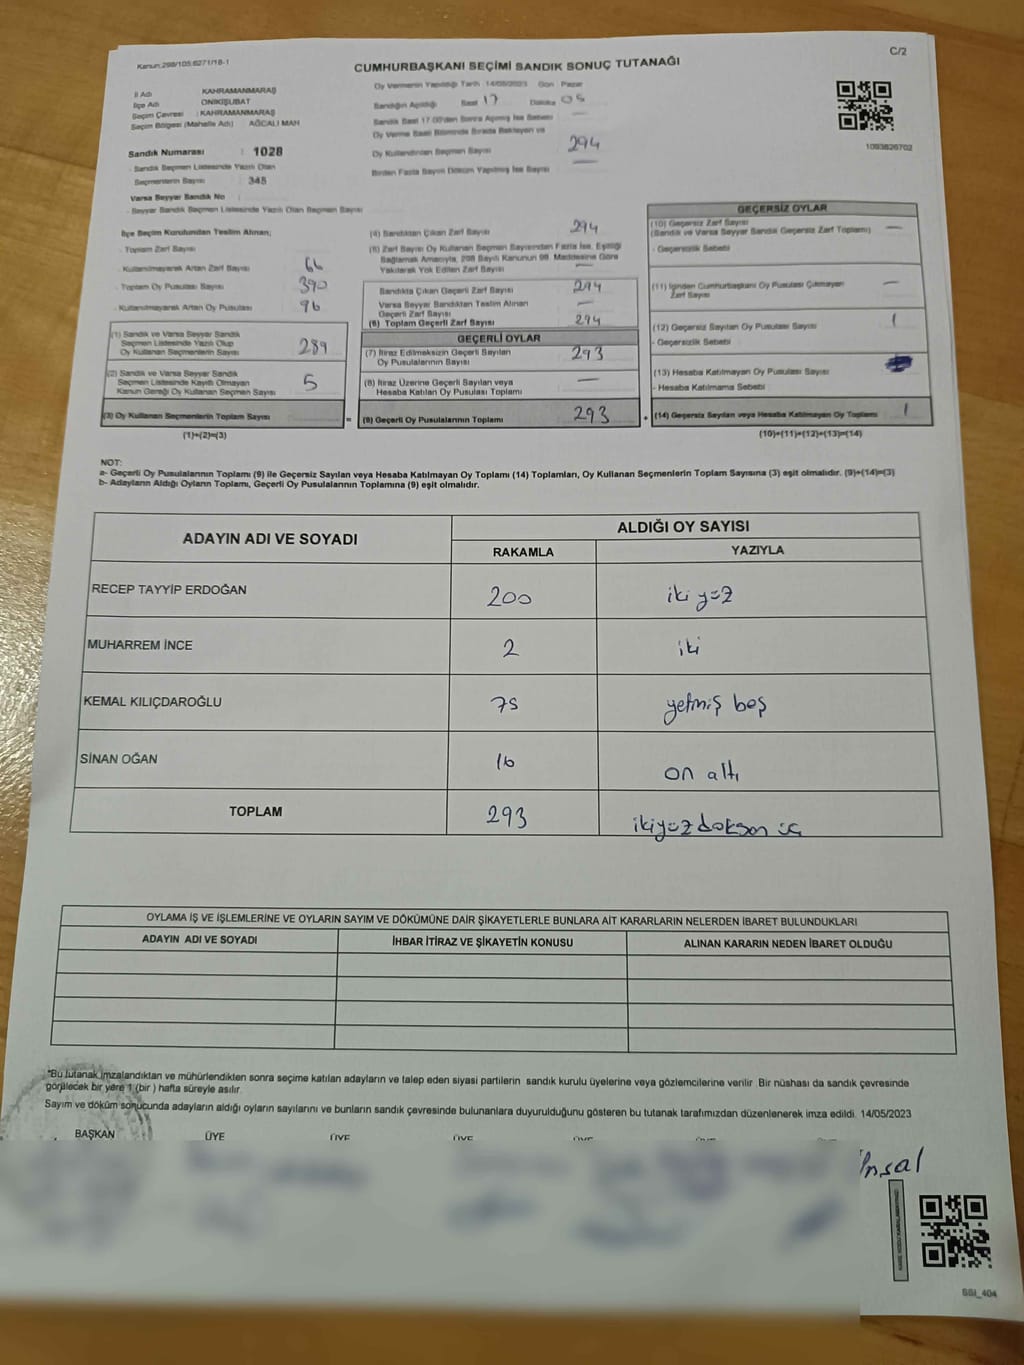 Kanun:298/105;6271/18-1
C/2
CUMHURBAŞKANI SEÇİMİ SANDIK SONUÇ TUTANAĞI
İl Adı KAHRAMANMARAŞ
İlçe Adı ONİKİŞUBAT
Seçim Çevresi : KAHRAMANMARAŞ
Seçim Bölgesi (Mahalle Adı) AĞCALI MAH
Sandık Numarası : 1028
- Sandık Seçmen Listesinde Yazılı Olan
Seçmenlerin Sayısı 345
Varsa Seyyar Sandık No :
- Seyyar Sandık Seçmen Listesinde Yazılı Olan Seçmen Sayısı
Oy Vermenin Yapıldığı Tarih 14/05/2023 Gün : Pazar
Sandığın Açıldığı Saat 17 Dakika 05
Sandık Saat 17.00'den Sonra Açılmış İse Sebebi —
Oy Verme Saati Bitiminde Sırada Bekleyen ve
Oy Kullandırılan Seçmen Sayısı 294
Birden Fazla Sayım Döküm Yapılmış İse Sayısı —
1093826702
İlçe Seçim Kurulundan Teslim Alınan;
- Toplam Zarf Sayısı
- Kullanılmayarak Artan Zarf Sayısı 66
- Toplam Oy Pusulası Sayısı 390
- Kullanılmayarak Artan Oy Pusulası 96
(1) Sandık ve Varsa Seyyar Sandık
Seçmen Listesinde Yazılı Olup
Oy Kullanan Seçmenlerin Sayısı 289
(2) Sandık ve Varsa Seyyar Sandık
Seçmen Listesinde Kayıtlı Olmayan
Kanun Gereği Oy Kullanan Seçmen Sayısı 5
(3) Oy Kullanan Seçmenlerin Toplam Sayısı
(1)+(2)=(3)
(4) Sandıktan Çıkan Zarf Sayısı 294
(5) Zarf Sayısı Oy Kullanan Seçmen Sayısından Fazla İse, Eşitliği
Sağlamak Amacıyla, 298 Sayılı Kanunun 98. Maddesine Göre
Yakılarak Yok Edilen Zarf Sayısı —
Sandıkta Çıkan Geçerli Zarf Sayısı 294
Varsa Seyyar Sandıktan Teslim Alınan
Geçerli Zarf Sayısı —
(6) Toplam Geçerli Zarf Sayısı 294
GEÇERLİ OYLAR
(7) İtiraz Edilmeksizin Geçerli Sayılan
Oy Pusulalarının Sayısı 293
(8) İtiraz Üzerine Geçerli Sayılan veya
Hesaba Katılan Oy Pusulası Toplamı —
= (9) Geçerli Oy Pusulalarının Toplamı 293
GEÇERSİZ OYLAR
(10) Geçersiz Zarf Sayısı
(Sandık ve Varsa Seyyar Sandık Geçersiz Zarf Toplamı) —
- Geçersizlik Sebebi
(11) İçinden Cumhurbaşkanı Oy Pusulası Çıkmayan
Zarf Sayısı —
(12) Geçersiz Sayılan Oy Pusulası Sayısı 1
- Geçersizlik Sebebi
(13) Hesaba Katılmayan Oy Pusulası Sayısı
- Hesaba Katılmama Sebebi
+ (14) Geçersiz Sayılan veya Hesaba Katılmayan Oy Toplamı 1
(10)+(11)+(12)+(13)=(14)
NOT:
a- Geçerli Oy Pusulalarının Toplamı (9) ile Geçersiz Sayılan veya Hesaba Katılmayan Oy Toplamı (14) Toplamları, Oy Kullanan Seçmenlerin Toplam Sayısına (3) eşit olmalıdır. (9)+(14)=(3)
b- Adayların Aldığı Oyların Toplamı, Geçerli Oy Pusulalarının Toplamına (9) eşit olmalıdır.
ADAYIN ADI VE SOYADI
ALDIĞI OY SAYISI
RAKAMLA YAZIYLA
RECEP TAYYİP ERDOĞAN 200 iki yüz
MUHARREM İNCE 2 iki
KEMAL KILIÇDAROĞLU 75 yetmiş beş
SİNAN OĞAN 16 on altı
TOPLAM 293 ikiyüz doksan üç
OYLAMA İŞ VE İŞLEMLERİNE VE OYLARIN SAYIM VE DÖKÜMÜNE DAİR ŞİKAYETLERLE BUNLARA AİT KARARLARIN NELERDEN İBARET BULUNDUKLARI
ADAYIN ADI VE SOYADI İHBAR İTİRAZ VE ŞİKAYETİN KONUSU ALINAN KARARIN NEDEN İBARET OLDUĞU
*Bu tutanak imzalandıktan ve mühürlendikten sonra seçime katılan adayların ve talep eden siyasi partilerin sandık kurulu üyelerine veya gözlemcilerine verilir. Bir nüshası da sandık çevresinde
görülecek bir yere 1 (bir ) hafta süreyle asılır.
Sayım ve döküm sonucunda adayların aldığı oyların sayılarını ve bunların sandık çevresinde bulunanlara duyurulduğunu gösteren bu tutanak tarafımızdan düzenlenerek imza edildi. 14/05/2023
BAŞKAN ÜYE ÜYE ÜYE ÜYE
SSI_404